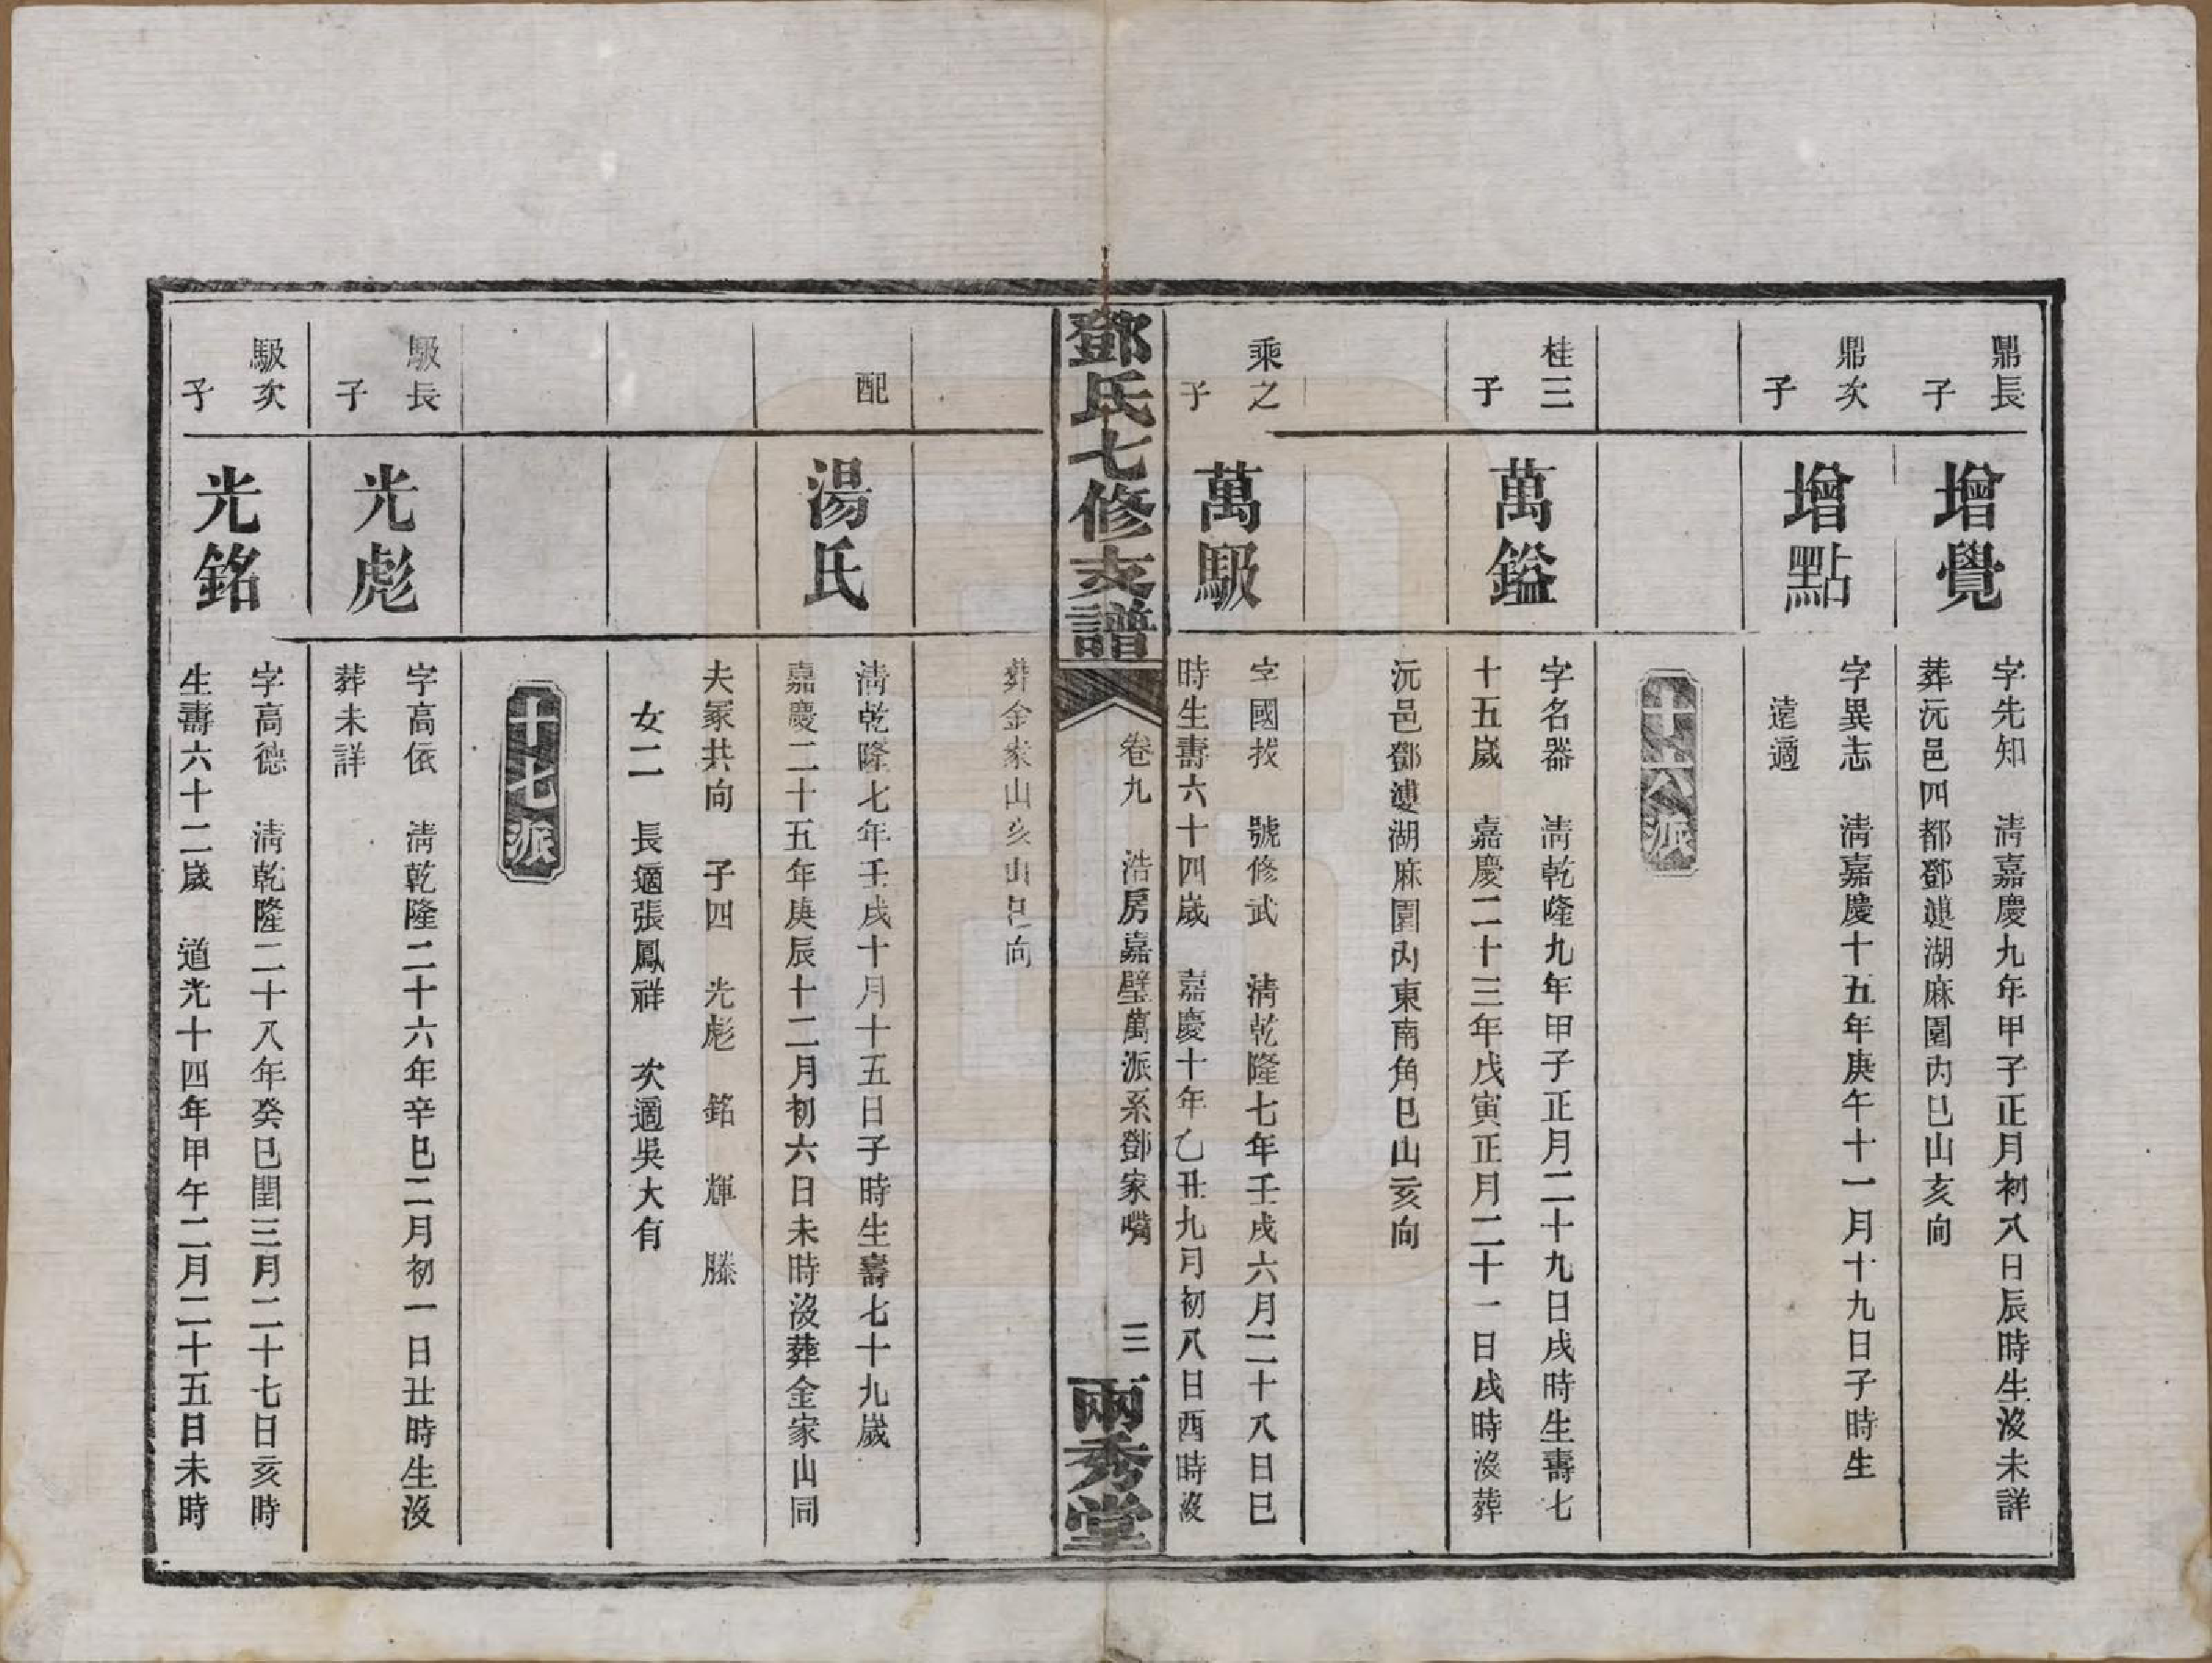 鼎長
子
增覺
字先知　清嘉慶九年甲子正月初八日辰時生沒未詳
葬沅邑四都鄧婕湖麻園內巳山亥向
鼎次
子
增點
字異志　清嘉慶十五年庚午十一月十九日子時生
遠適
十六派
桂三
子
萬鎰
字名器　清乾隆九年甲子正月二十九日戌時生壽七
十五歲　嘉慶二十三年戊寅正月二十一日戌時沒葬
沅邑鄧婕湖麻園內東南角巳山亥向
乘之
子
萬馺
字國拔　號修武　清乾隆七年壬戌六月二十八日巳
時生壽六十四歲　嘉慶十年乙丑九月初八日酉時沒
鄧氏七修支譜
卷九　浩房嘉璧萬派系鄧家嘴　三
兩秀堂
葬金家山亥山巳向
配
湯氏
清乾隆七年壬戌十月十五日子時生壽七十九歲
嘉慶二十五年庚辰十二月初六日未時沒葬金家山同
夫冢共向　子四　光彪　銘　輝　滕
女二　長適張鳳祥　次適吳大有
十七派
馺長
子
光彪
字高依　清乾隆二十六年辛巳二月初一日丑時生沒
葬未詳
馺次
子
光銘
字高德　清乾隆二十八年癸巳閏三月二十七日亥時
生壽六十二歲　道光十四年甲午二月二十五日未時